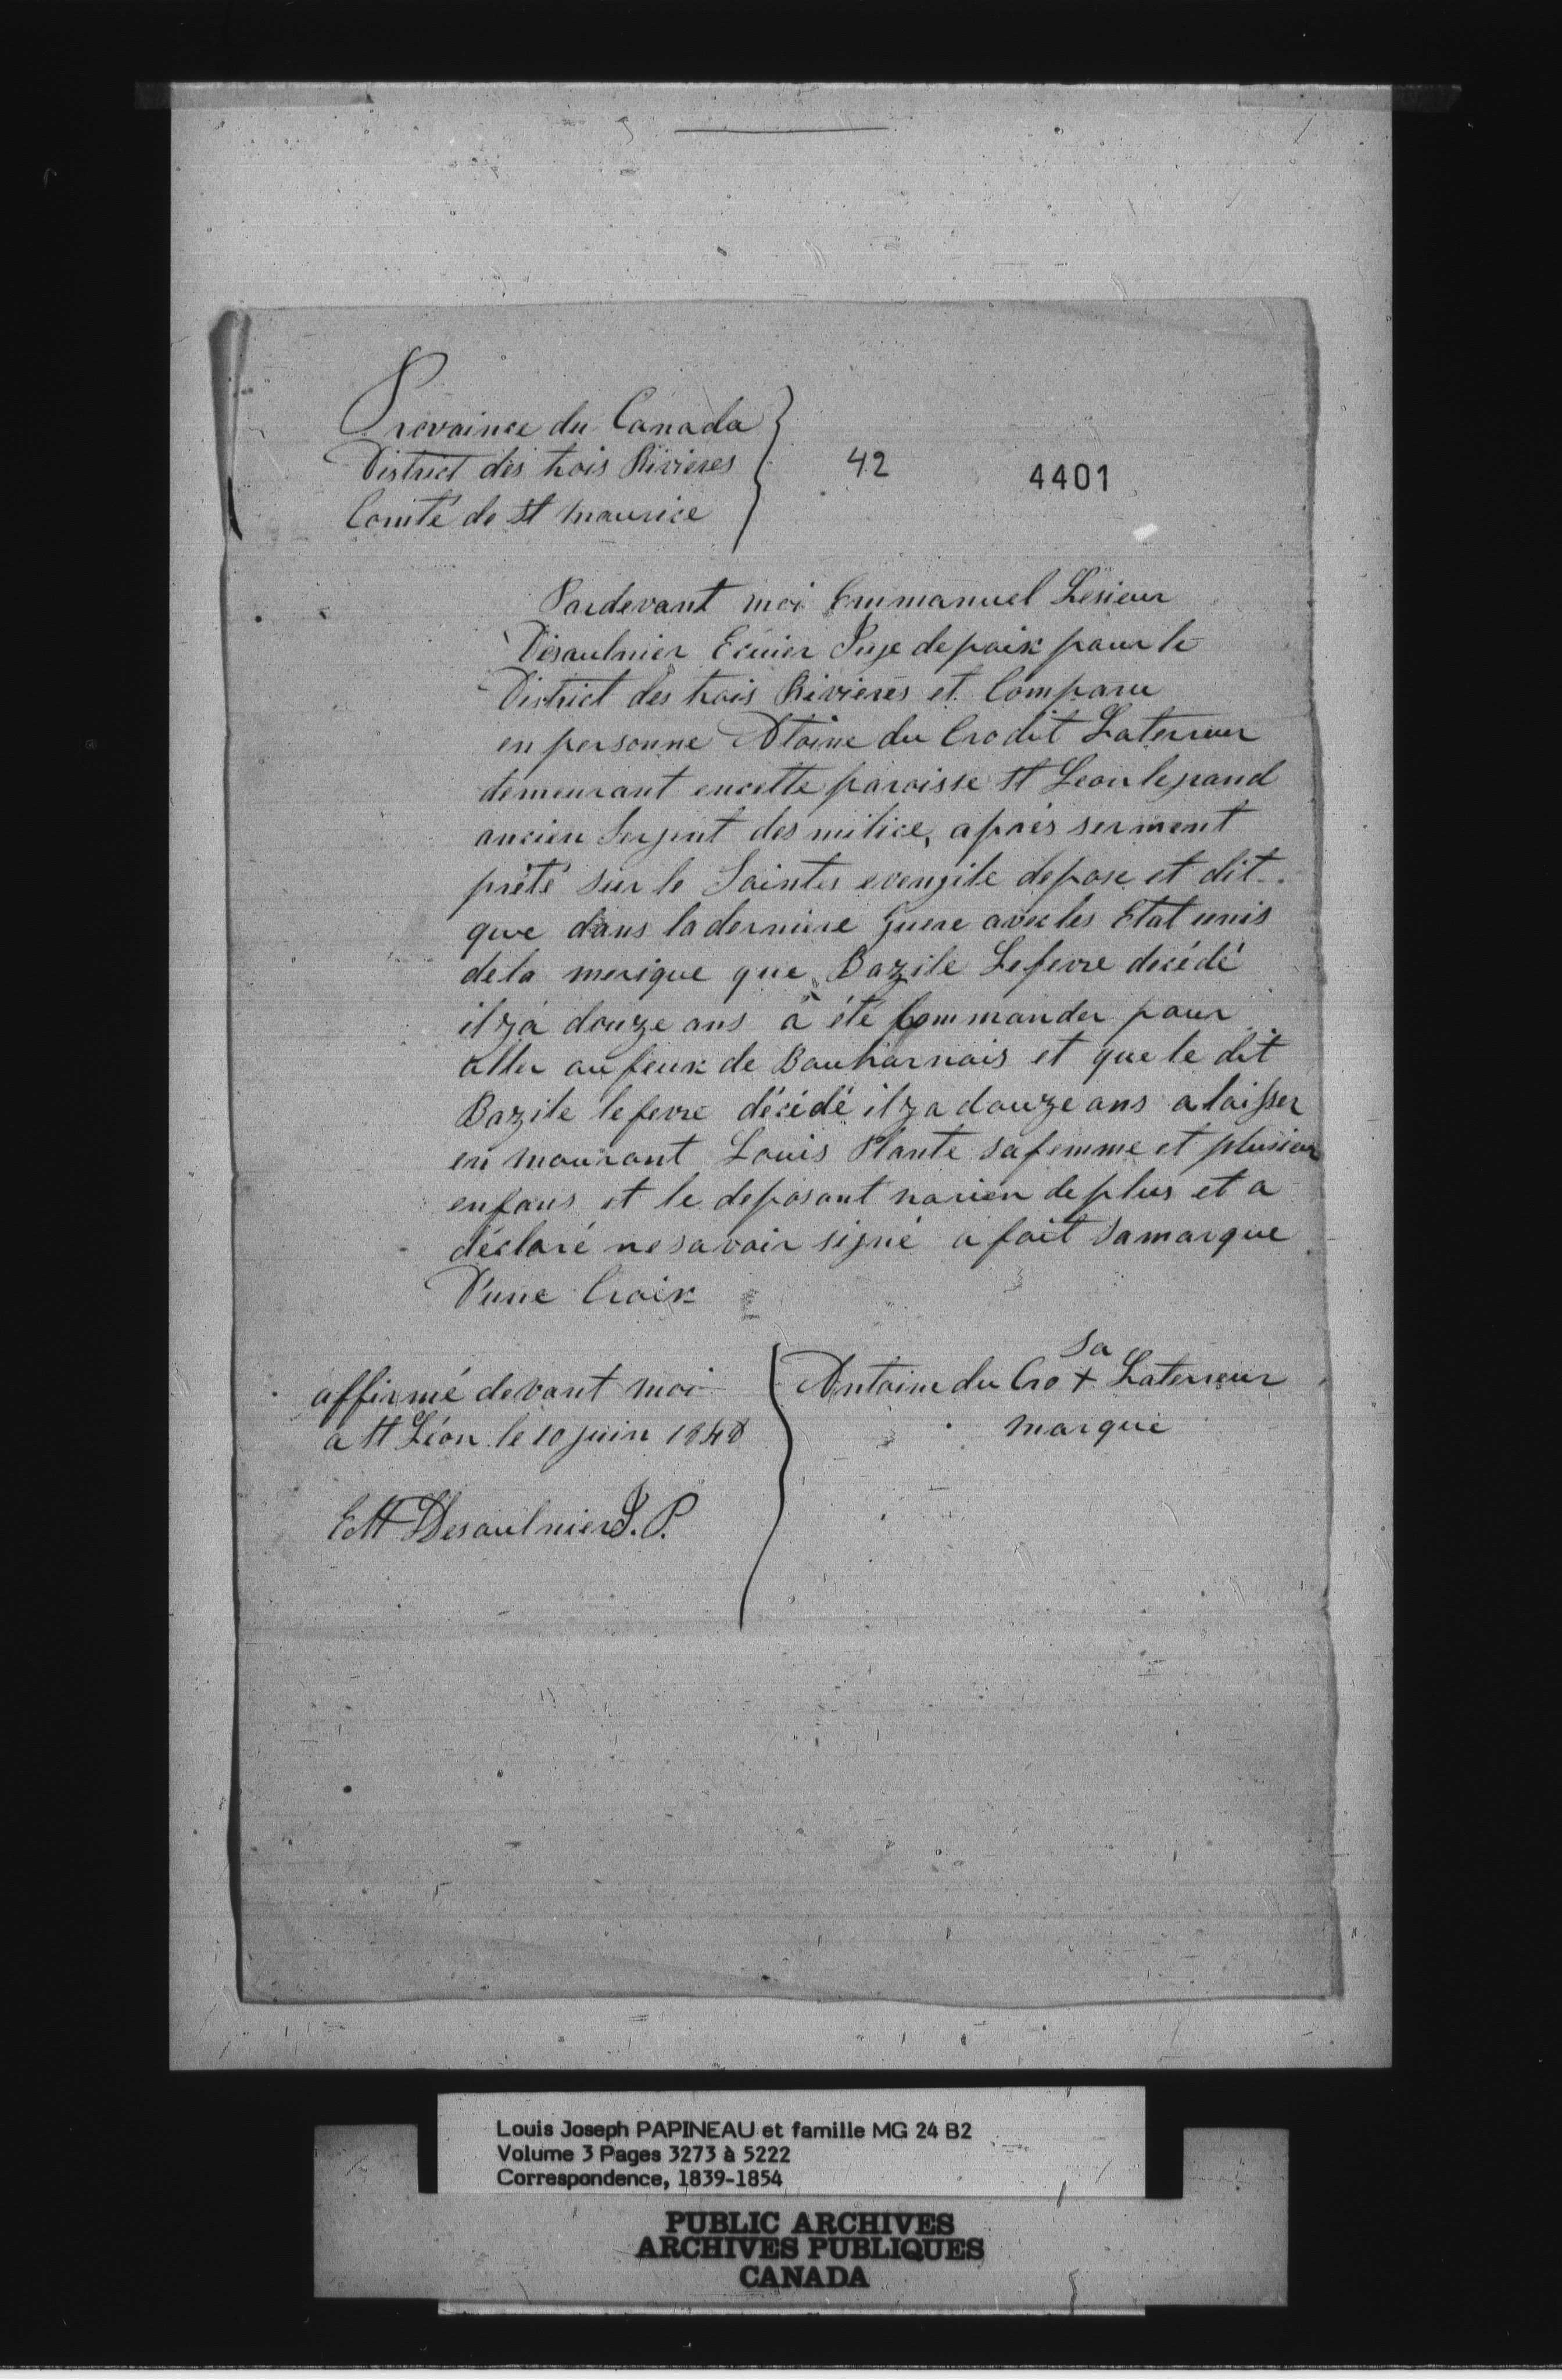 Provaince du Canada
District des trois Rivieres
Comté de St Maurice
42
4401
Pardevant moi Emmanuel Lesieur
Désaulnier Ecuier Juge depaix pour le
District des trois Rivieres et Comparu
en personne Atoine du Cro dit Laterreur
demeurant encette paroisse St Leon legrand
ancien Serjent des milice, après serment
prété sur le Saintes evengile depose et dit
que dans laderniere guere avec les Etat unis
dela merique que Bazile Lefevre décédé
il ya douze ans a été Commander pour
aller aufeux de Bauharnais et que le dit
Bazile lefevre décédé il ya douze ans a laisser
en mourant Louis Plante safemme et plusieur
enfans et le deposant narien deplus et a
déclaré nesavoir signé a fait samarque
D'une Croix
affirmé devant moi
a St Léon le 10 juin 1848
Desaulnier J. P.
sa
Antoine du Cro + Laterreur
marque
Louis Joseph PAPINEAU et famille MG 24 B2
Volume 3 Pages 3273 à 5222
Correspondence, 1839-1854
PUBLIC ARCHIVES
ARCHIVES PUBLIQUES
CANADA